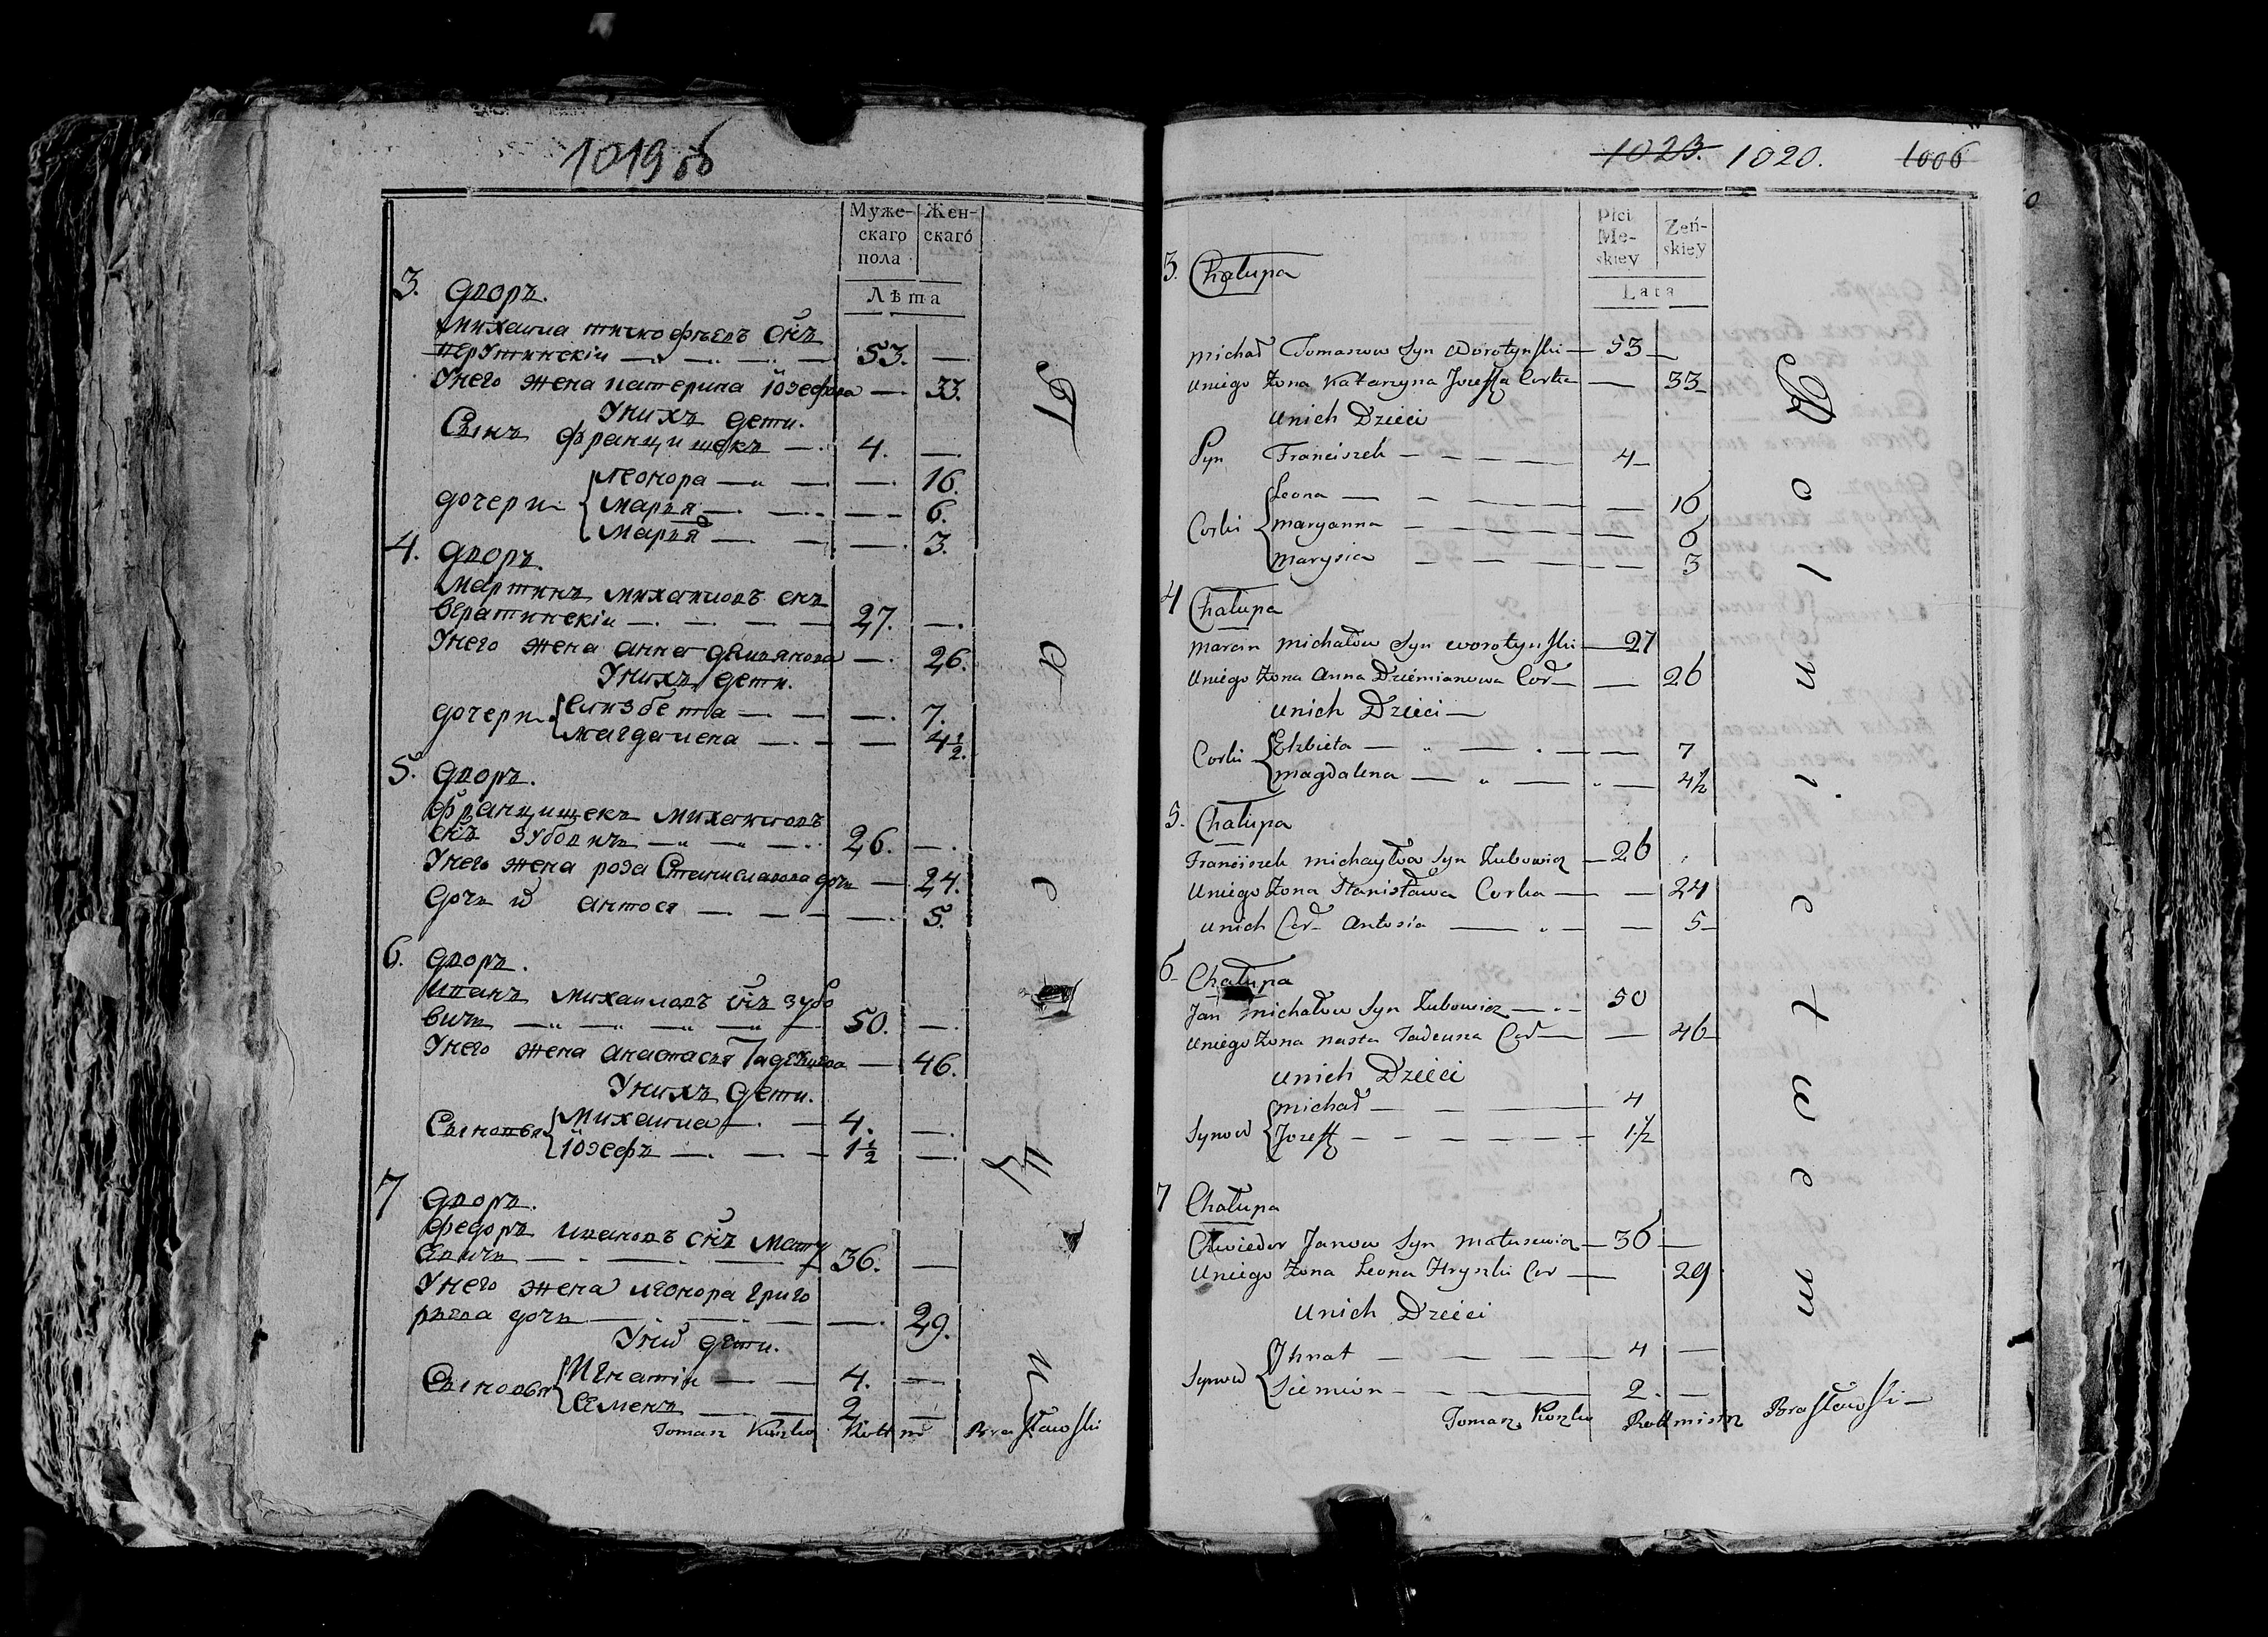 1019 об
Муже-
скаго
пола
Жен-
скаго
Лѣта
3. Дворъ.
Михаила Тимофѣевъ снъ
53. —
У него жена Катерина Иозефова — 33.
У нихъ дети.
Сынъ францишекъ — 4. —
дочери
Леонора — 16.
Марья — 6.
Марья — 3.
4. Дворъ.
Мартинъ Михаиловъ снъ
Вератинскій — 27. —
У него жена Анна Демьянова — 26.
У нихъ дети.
дочери
Елизбета — 7.
Магдалена — 4 1/2.
5. Дворъ.
Францишекъ Михаиловъ
снъ Зубовичъ — 26. —
У него жена Роза Станиславова дочь — 24.
Дочь Антося — 5.
6. Дворъ.
Иванъ Михаиловъ снъ Зубо
вичъ — 50. —
У него жена Анастасья Тадеушова — 46.
У нихъ дети.
Сыновья
Михаила — 4. —
Иозефъ — 1 1/2 —
7 Дворъ.
Федоръ Ивановъ снъ Мату
евичъ — 36. —
У него жена Леонора Григо
рьева дочь — 29.
У них дети.
Сыновья
Игнатій — 4. —
Семенъ — 2. —
Tomasz Kozlo Rottm Brasławski
1023. 1020. 1006
Płci
Mę-
skiey
Żeń-
skiey
Lata
3. Chałupa
Michał Tomaszow Syn Worotynski — 53 —
Uniego Żona Katarzyna Jozeffa Corka — 33 —
Unich Dzieci
Syn Franciszek — 4 —
Corki
Leona — 16
Maryanna — 6
Marysia — 3
4 Chałupa
Marcin Michałow Syn Worotynski — 27
Uniego Żona Anna Dziemianowa Cor — 26
Unich Dzieci —
Corki
Elzbieta — 7
Magdalena — 4 1/2
5. Chałupa
Franciszek Michayłow Syn Zubowicz — 26
Uniego Żona Stanisława Corka — 24
Unich Cor Antosia — 5 —
6 Chałupa
Jan Michałow Syn Zubowicz — 50
Uniego Żona Nasta Tadeusza Cor — 46
Unich Dzieci
Synow
Michał — 4
Jozeff — 1 1/2
7 Chałupa
Chwiedor Janow Syn Matusewicz — 36 —
Uniego Żona Leona Hryszki Cor — 29
Unich Dzieci
Synow
Ihnat — 4 —
Siemion — 2. —
Tomasz Kozlo Rottmistrz Brasławski —